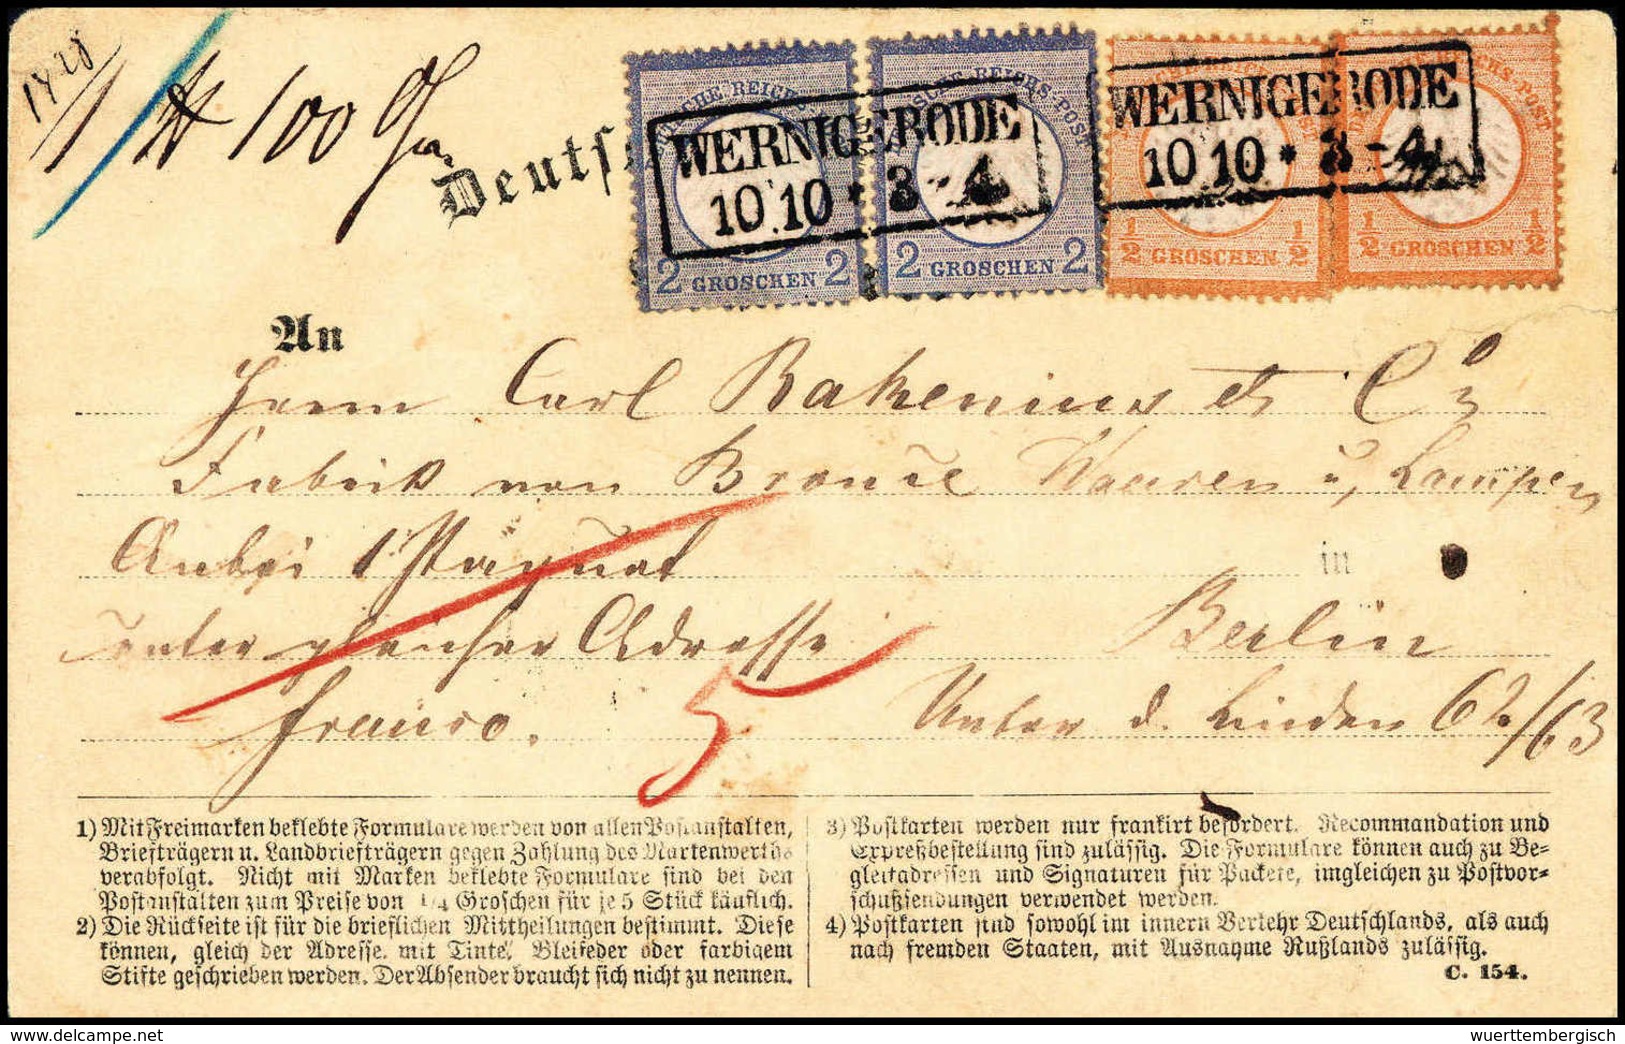 1428
1 ℔ 100 Gr.
Deutsc
DEUTSCHE REICHS-POST
2 GROSCHEN 2
2 GROSCHEN 2
1/2 GROSCHEN 1/2
1/2 GROSCHEN 1/2
WERNIGERODE
10 10 * 3-4
WERNIGERODE
10 10 * 3-4
An
Herrn Carl Rakenius et Co
Fabrik von Bronce Waaren u, Lampen
Anbei 1 Paquet
in
unter gleicher Adresse
Berlin
franco.
5
Unter d. Linden 62/63
1) Mit Freimarken beklebte Formulare werden von allen Postanstalten,
Briefträgern u. Landbriefträgern gegen Zahlung des Markenwerths
verabfolgt. Nicht mit Marken beklebte Formulare sind bei den
Postanstalten zum Preise von 1/4 Groschen für je 5 Stück käuflich.
2) Die Rückseite ist für die brieflichen Mittheilungen bestimmt. Diese
können, gleich der Adresse, mit Tinte, Bleifeder oder farbigem
Stifte geschrieben werden. Der Absender braucht sich nicht zu nennen.
3) Postkarten werden nur frankirt befördert. Recommandation und
Expreßbestellung sind zulässig. Die Formulare können auch zu Be-
gleitadressen und Signaturen für Packete, imgleichen zu Postvor-
schußsendungen verwendet werden.
4) Postkarten sind sowohl im innern Verkehr Deutschlands, als auch
nach fremden Staaten, mit Ausnahme Rußlands zulässig.
C. 154.
delcampe.net
wuerttembergisch